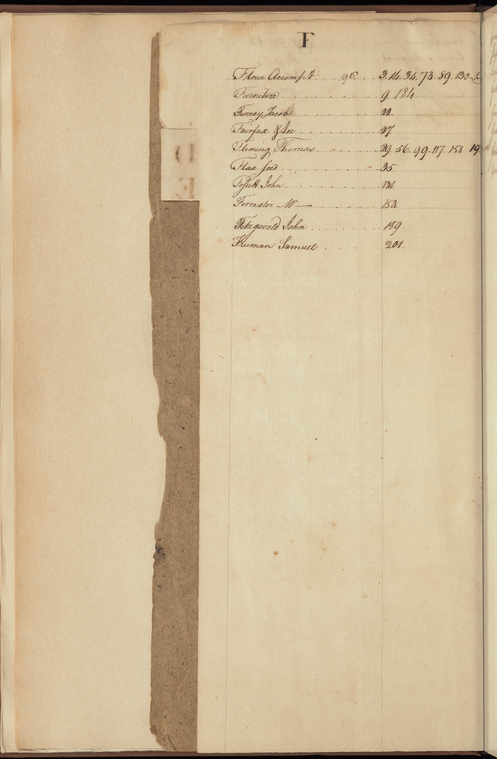 F
Flour Accompt 3. 14. 34. 73. 89. 130.
Furniture 9. 184
Jacob 22
Fairfax & Lee 27
Fleming Thomas 29. 56. 99. 117. 152. 19
Flax seed 35
John 131
Forrester Mr 152
Fitzgerald John 159
Samuel 201.
D
E